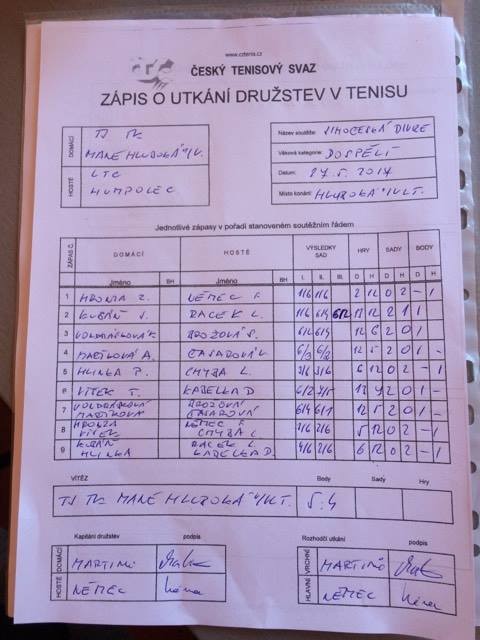 www.cztenis.cz
ČESKÝ TENISOVÝ SVAZ
ZÁPIS O UTKÁNÍ DRUŽSTEV V TENISU
DOMÁCÍ TJ TK
MANE HLUBOKÁ n/V.
HOSTÉ LTC
HUMPOLEC
Název soutěže: JIHOČESKÁ DIVIZE
Věková kategorie: DOSPĚLÍ
Datum: 27. 5. 2017
Místo konání: HLUBOKÁ n/VLT.
Jednotlivé zápasy v pořadí stanoveném soutěžním řádem
ZÁPAS Č. DOMÁCÍ HOSTÉ VÝSLEDKY SAD HRY SADY BODY
Jméno BH Jméno BH I. II. III. D H D H D H
1 HRONZA Z. NĚMEC F. 1/6 1/6 2 12 0 2 - 1
2 KUBÁŇ J. RACEK L. 1/6 6/4 6/2 13 12 2 1 1
3 VONDRÁŠKOVÁ K. BROŽOVÁ S. 6/2 6/4 12 6 2 0 1
4 MARTÍKOVÁ A. 6/3 6/2 12 5 2 0 1 -
5 HLINKA P. CHYBA L. 3/6 3/6 6 12 0 2 - 1
6 VÍTEK T. KABELKA D 6/2 2 0 1 -
7 BROŽOVÁ
6/4 6/1 12 5 2 0 1 -
8 HRONZA NĚMEC F.
VÍTEK CHYBA L 3/6 2/6 5 12 0 2 - 1
9 KUBÁŇ RACEK L.
HLINKA KABELKA D. 4/6 2/6 6 12 0 2 - 1
VÍTĚZ Body Sady Hry
TJ TK MANE HLUBOKÁ n/VLT. 5:4
Kapitáni družstev podpis
DOMÁCÍ MARTINŮ
HOSTÉ NĚMEC
Rozhodčí utkání podpis
VRCHNÍ MARTINŮ
HLAVNÍ NĚMEC